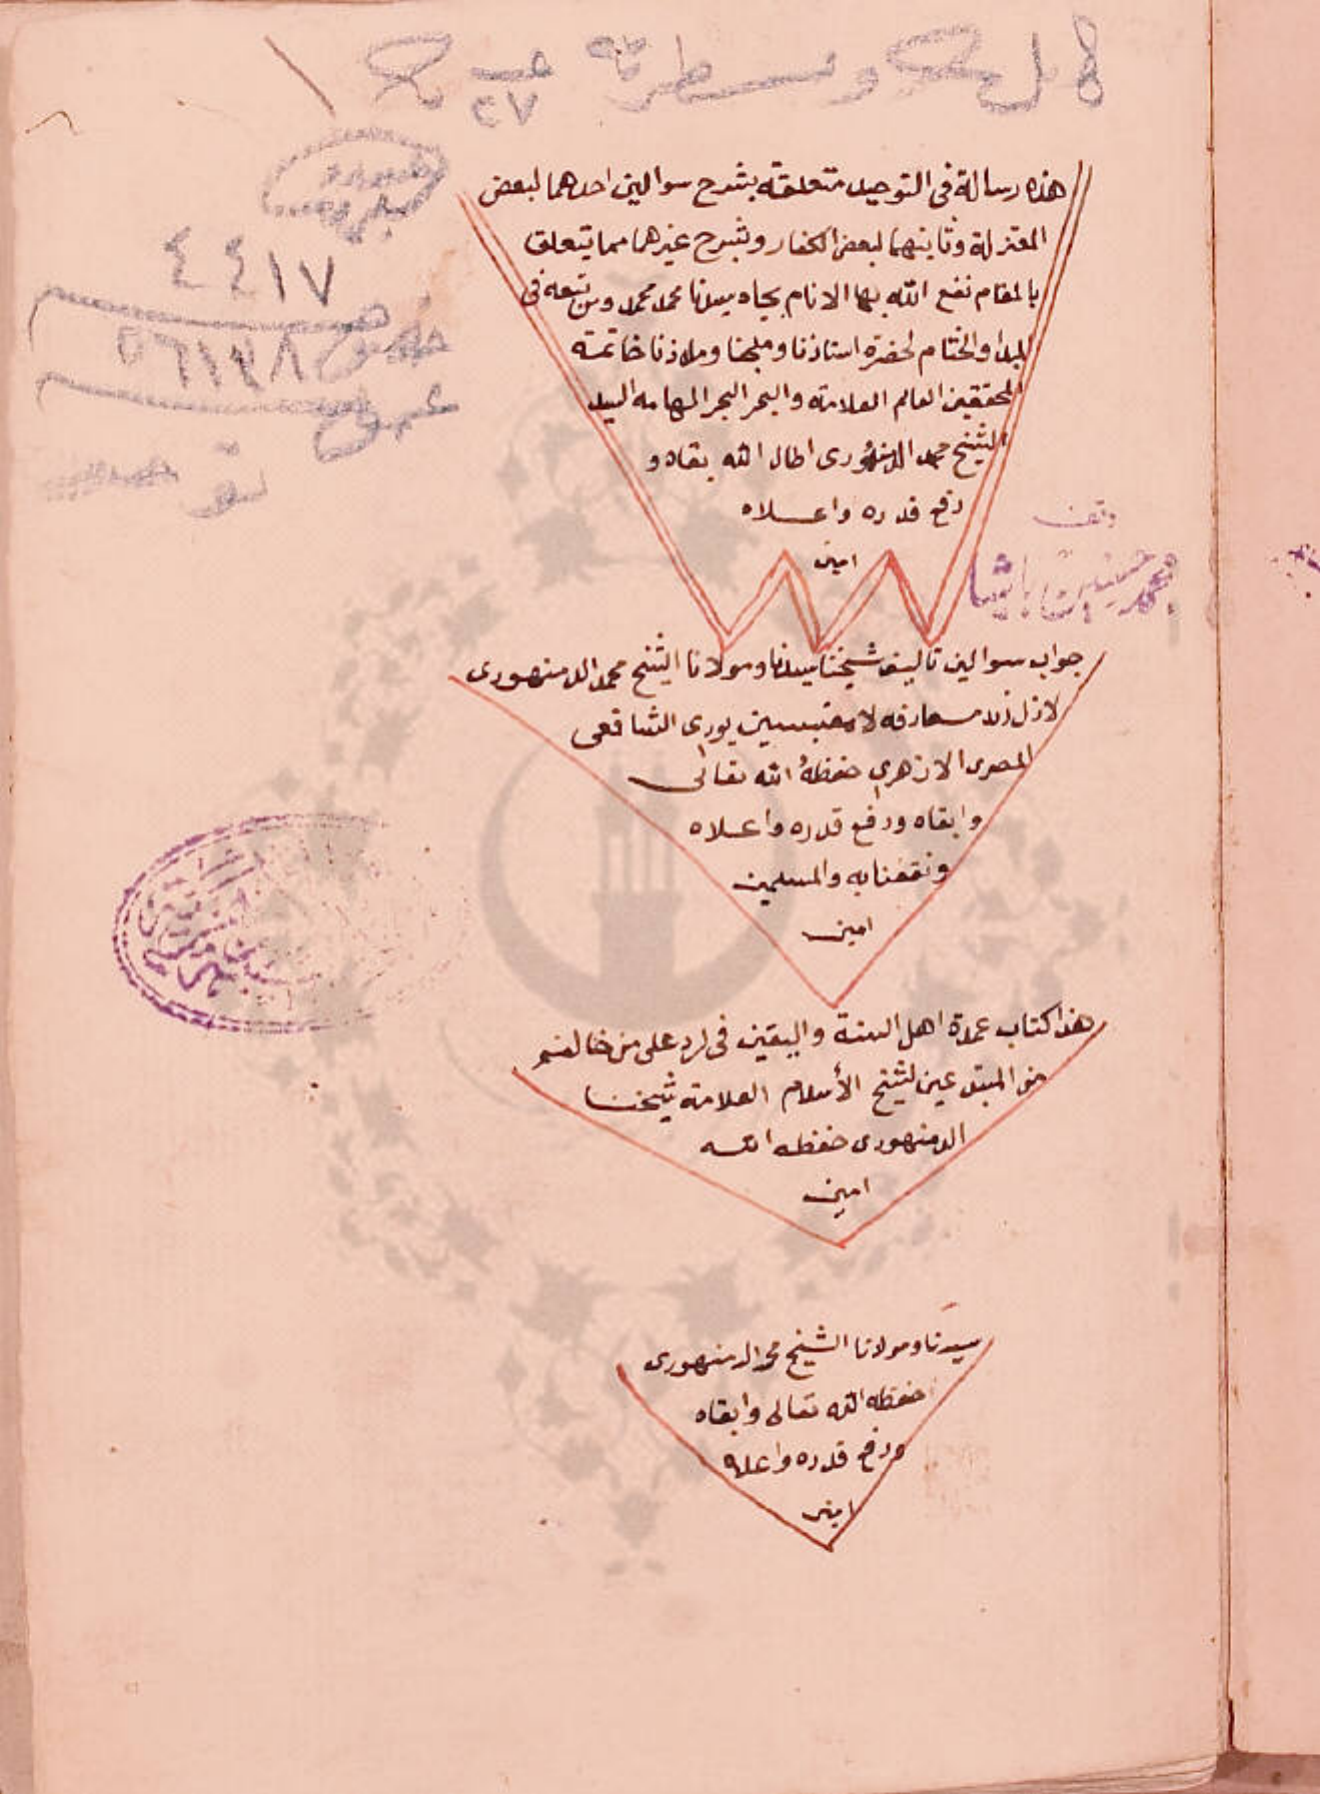 هذه رسالة فى التوحيد متعلقة بشرح سوالين احدهما لبعض
المعتزلة وثانيهما لبعض الكفار وشرح غيرهما مما يتعلق
بالمقام نفع الله بها الانام بجاه سيدنا محمد ومن تبعه فى
المبدا والختام لحضرة استاذنا وملجئنا وملاذنا خاتمة
المحققين العالم العلامة والبحر البحر الفهامه السيد
الشيخ محمد الدمنهورى اطال الله بقاه و
رفع قدره واعلاه
امين
وقف
محمد حسنين باشا
جواب سوالين تاليف شيخنا سيدنا ومولانا الشيخ محمد الدمنهورى
لازل معارفه للمقتبسين يورى الشافعى
المصرى الازهرى حفظه الله تعالى
وابقاه ورفع قدره واعلاه
ونفعنا به والمسلمين
امين
هذا كتاب عمدة اهل السنة واليقين فى لرد على من خالفهم
من المبتدعين لشيخ الأسلام العلامة شيخنا
الدمنهورى حفظه الله
امين
سيدنا ومولانا الشيخ محمد الدمنهورى
حفظه الله تعالى وابقاه
ورفع قدره واعلاه
امين
٢٧
٤٤١٧
خصوص
عموم